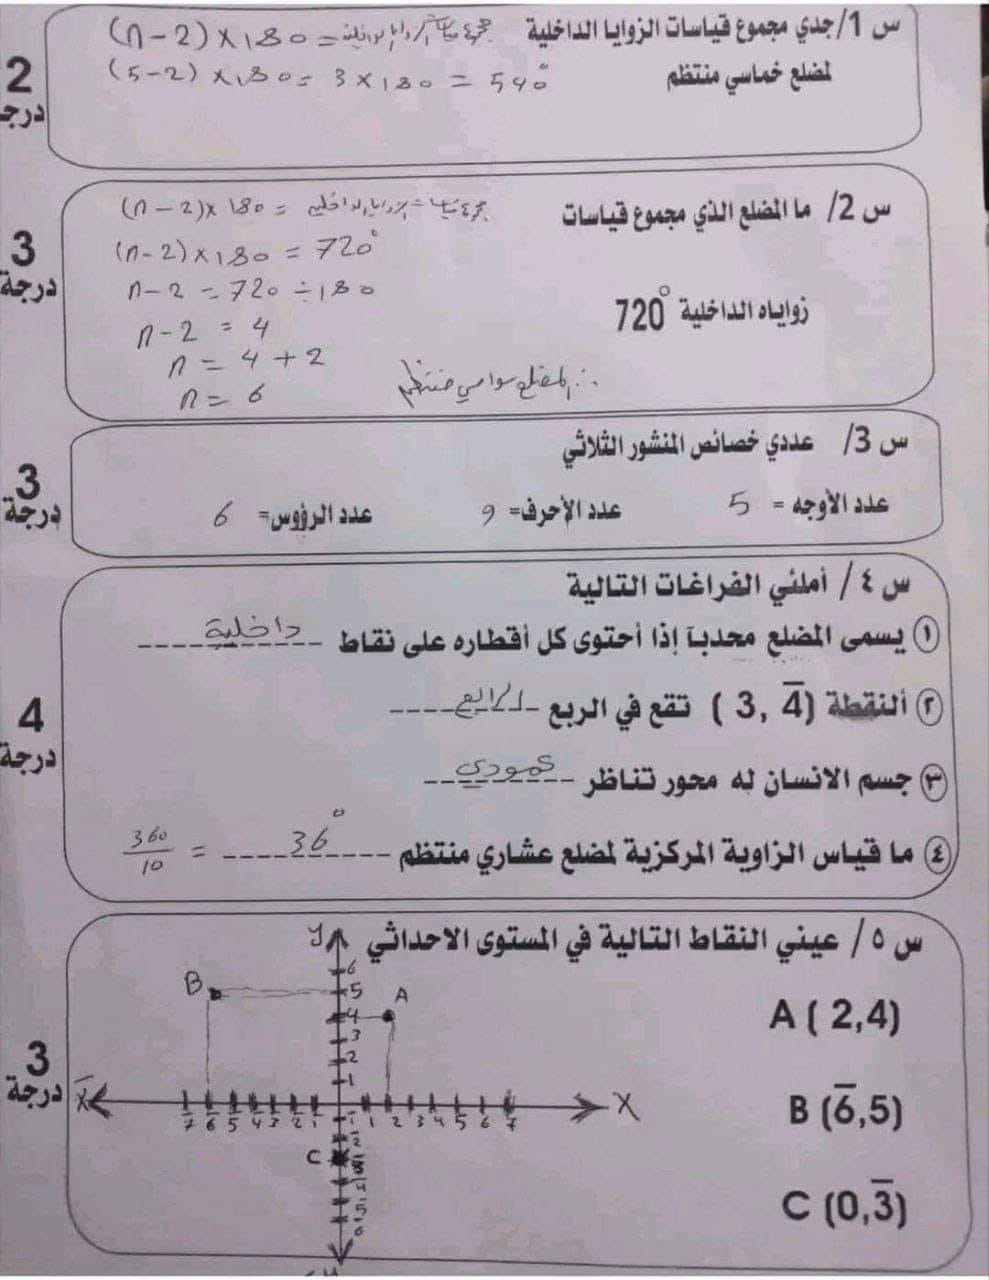 س 1/ جدي مجموع قياسات الزوايا الداخلية مجموع قياسات الزوايا الداخلية = (n-2)×180
لمضلع خماسي منتظم (5-2)×180 = 3×180 = 540°
2
درجة
س 2/ ما المضلع الذي مجموع قياسات
زواياه الداخلية 720°
مجموع قياسات الزوايا الداخلية = (n-2)×180
(n-2)×180 = 720°
n-2 = 720÷180
n-2 = 4
n = 4+2
n = 6
∴ المضلع سداسي منتظم
3
درجة
س 3/ عددي خصائص المنشور الثلاثي
عدد الأوجه = 5 عدد الأحرف= 9 عدد الرؤوس= 6
3
درجة
س ٤/ أملئي الفراغات التالية
١ يسمى المضلع محدبآ إذا أحتوى كل أقطاره على نقاط داخلية
٢ ألنقطة (3, 4̅) تقع في الربع الرابع
٣ جسم الانسان له محور تناظر عمودي
٤ ما قياس الزاوية المركزية لمضلع عشاري منتظم 36° = 360/10
4
درجة
س ٥/ عيني النقاط التالية في المستوى الاحداثي
A ( 2,4)
B (6̅,5)
C (0,3̅)
3
درجة
y
6
B 5 A
4
3
2
1
X̅ 7̅ 6̅ 5̅ 4̅ 3̅ 2̅ 1̅ 1 2 3 4 5 6 7 X
1̅
2̅
C 3̅
4̅
5̅
6̅